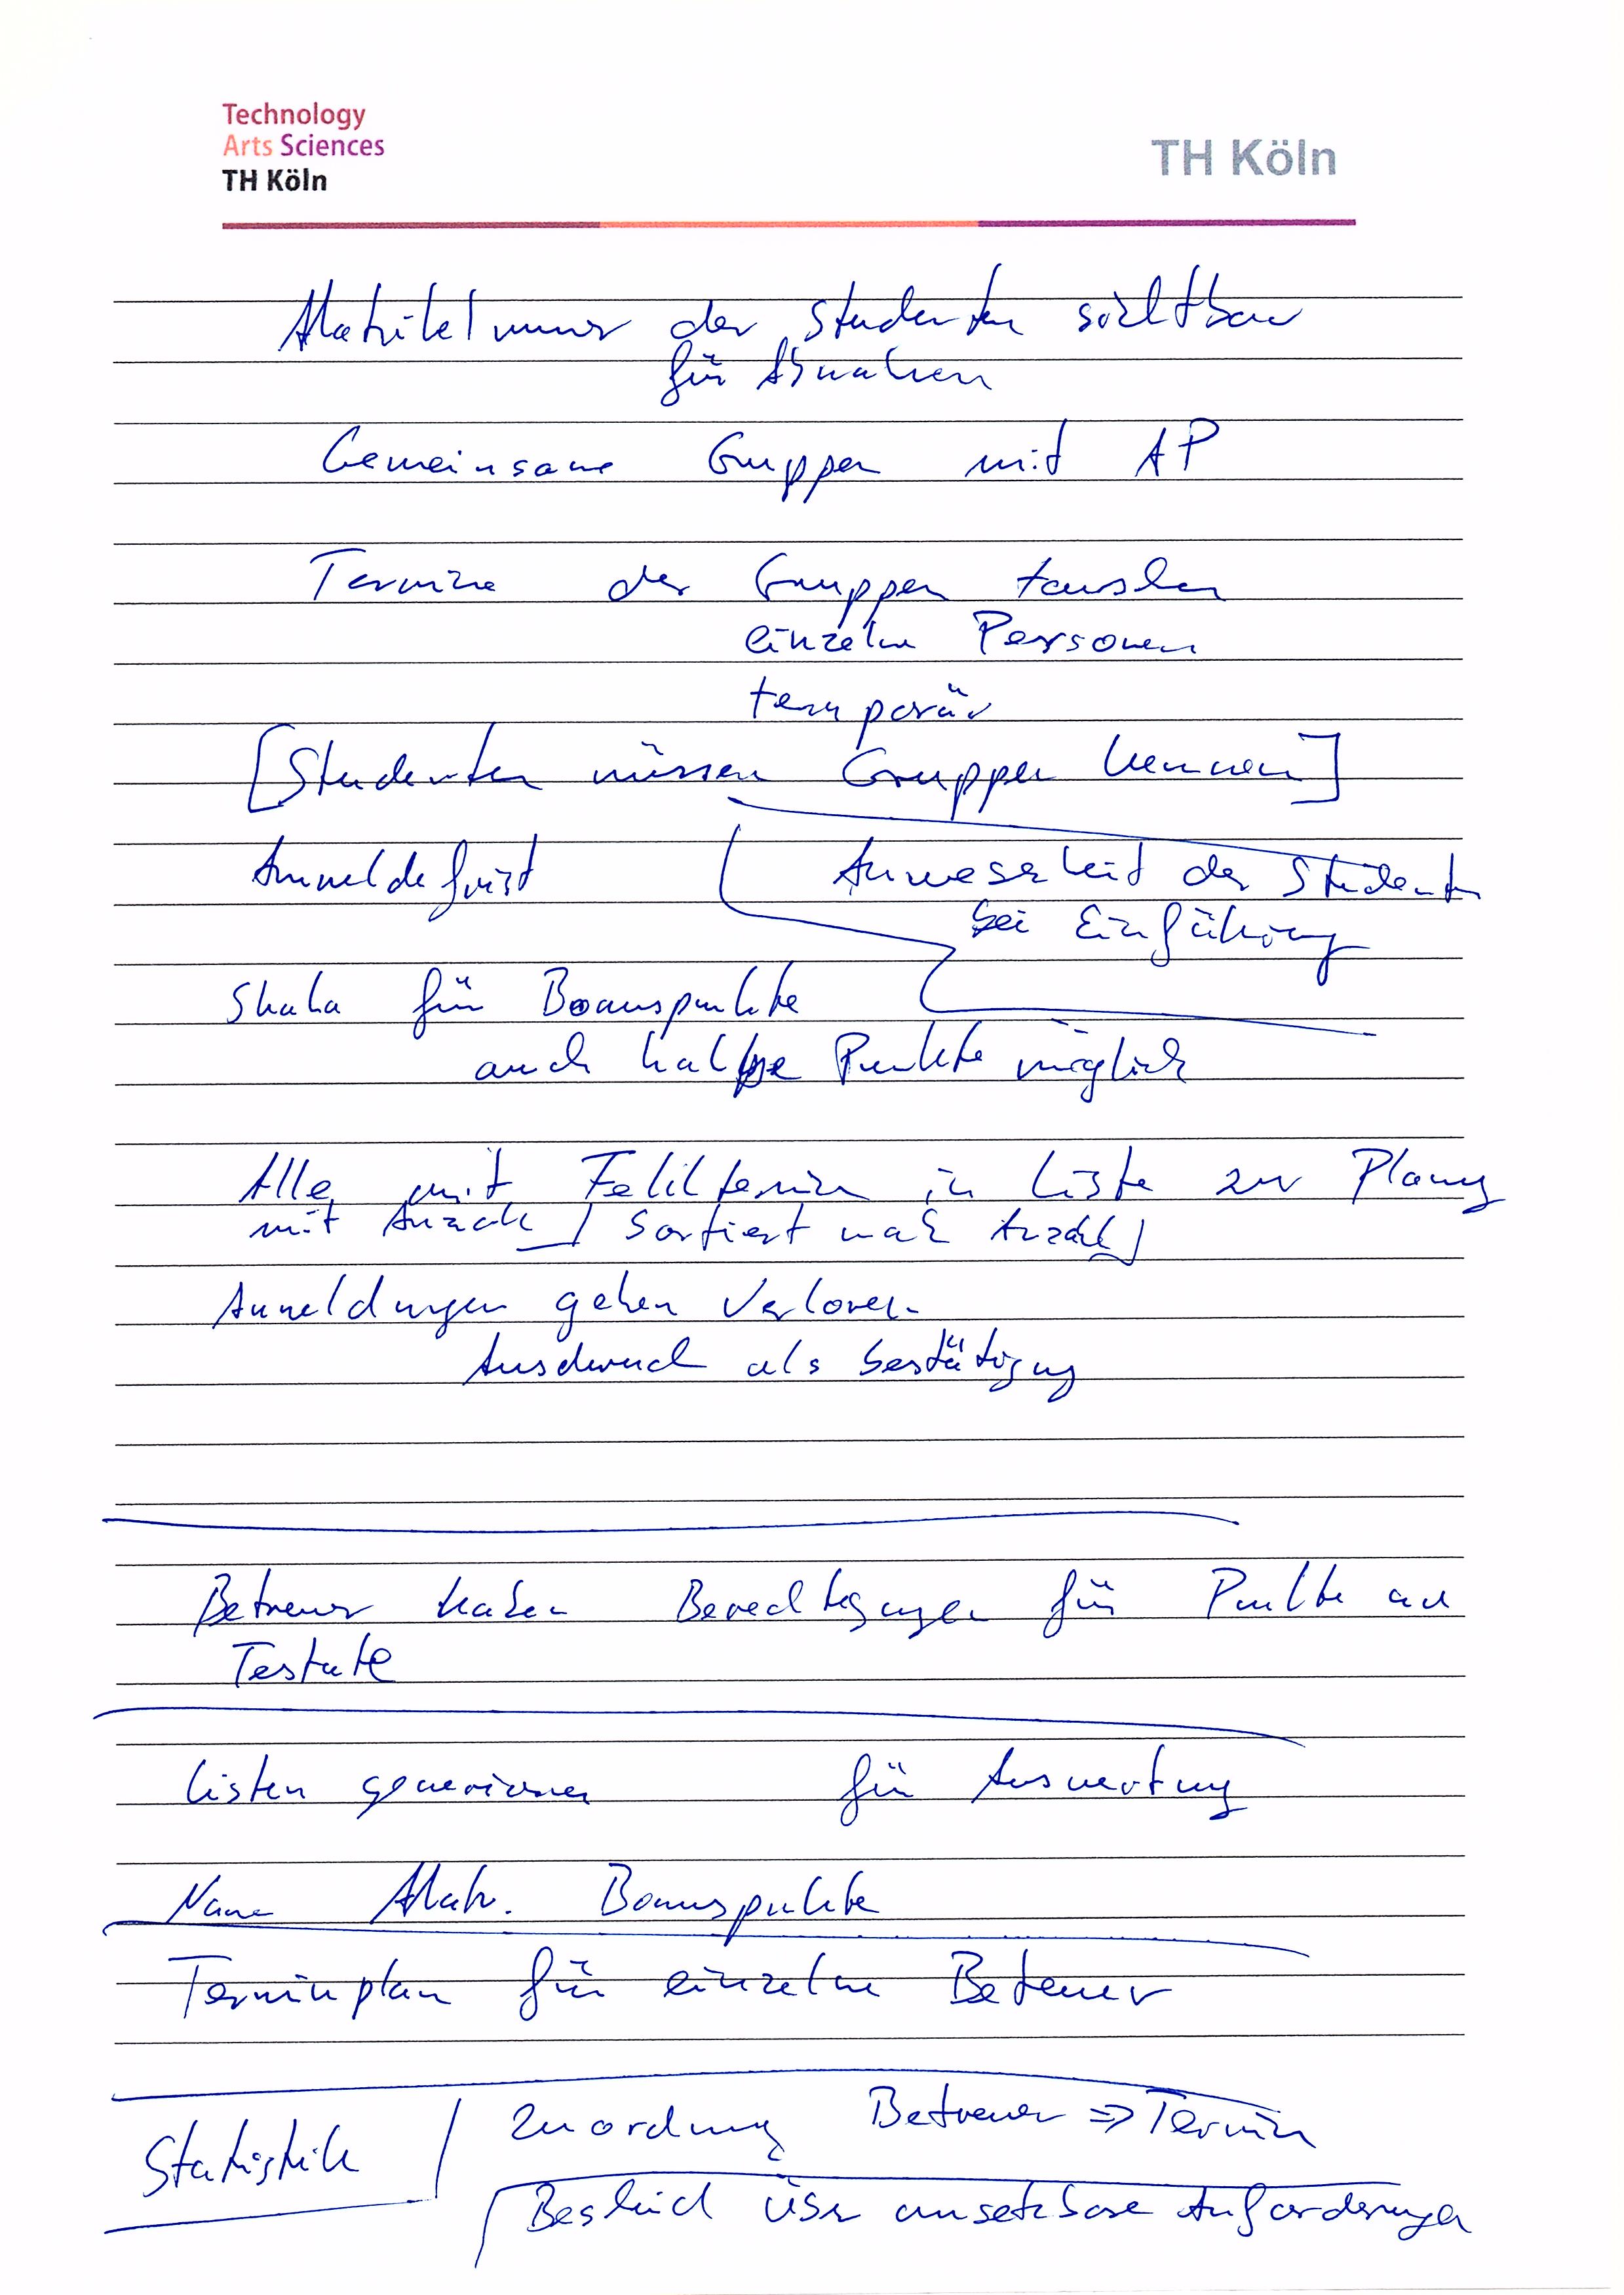 Technology
Arts Sciences
TH Köln
TH Köln
Matrikelnummer der Studenten sichtbar
für Abnahmen
Gemeinsame Gruppen mit AP
Termine der Gruppen tauschen
einzelne Personen
temporär
[Studenten müssen Gruppen kennen]
Anmeldefrist
Anwesenheit der Studenten
bei Einführung
Skala für Bonuspunkte
auch halbe Punkte möglich
Alle mit Fehltermin in Liste zur Planung
mit Anzahl / sortiert nach Anzahl /
Anmeldungen gehen verloren
Ausdruck als Bestätigung
Betreuer haben Berechtigungen für Punkte und
Testate
Listen generieren für Auswertung
Name Matr. Bonuspunkte
Terminplan für einzelne Betreuer
Statistik
Zuordnung Betreuer => Termin
Bescheid über umsetzbare Anforderungen